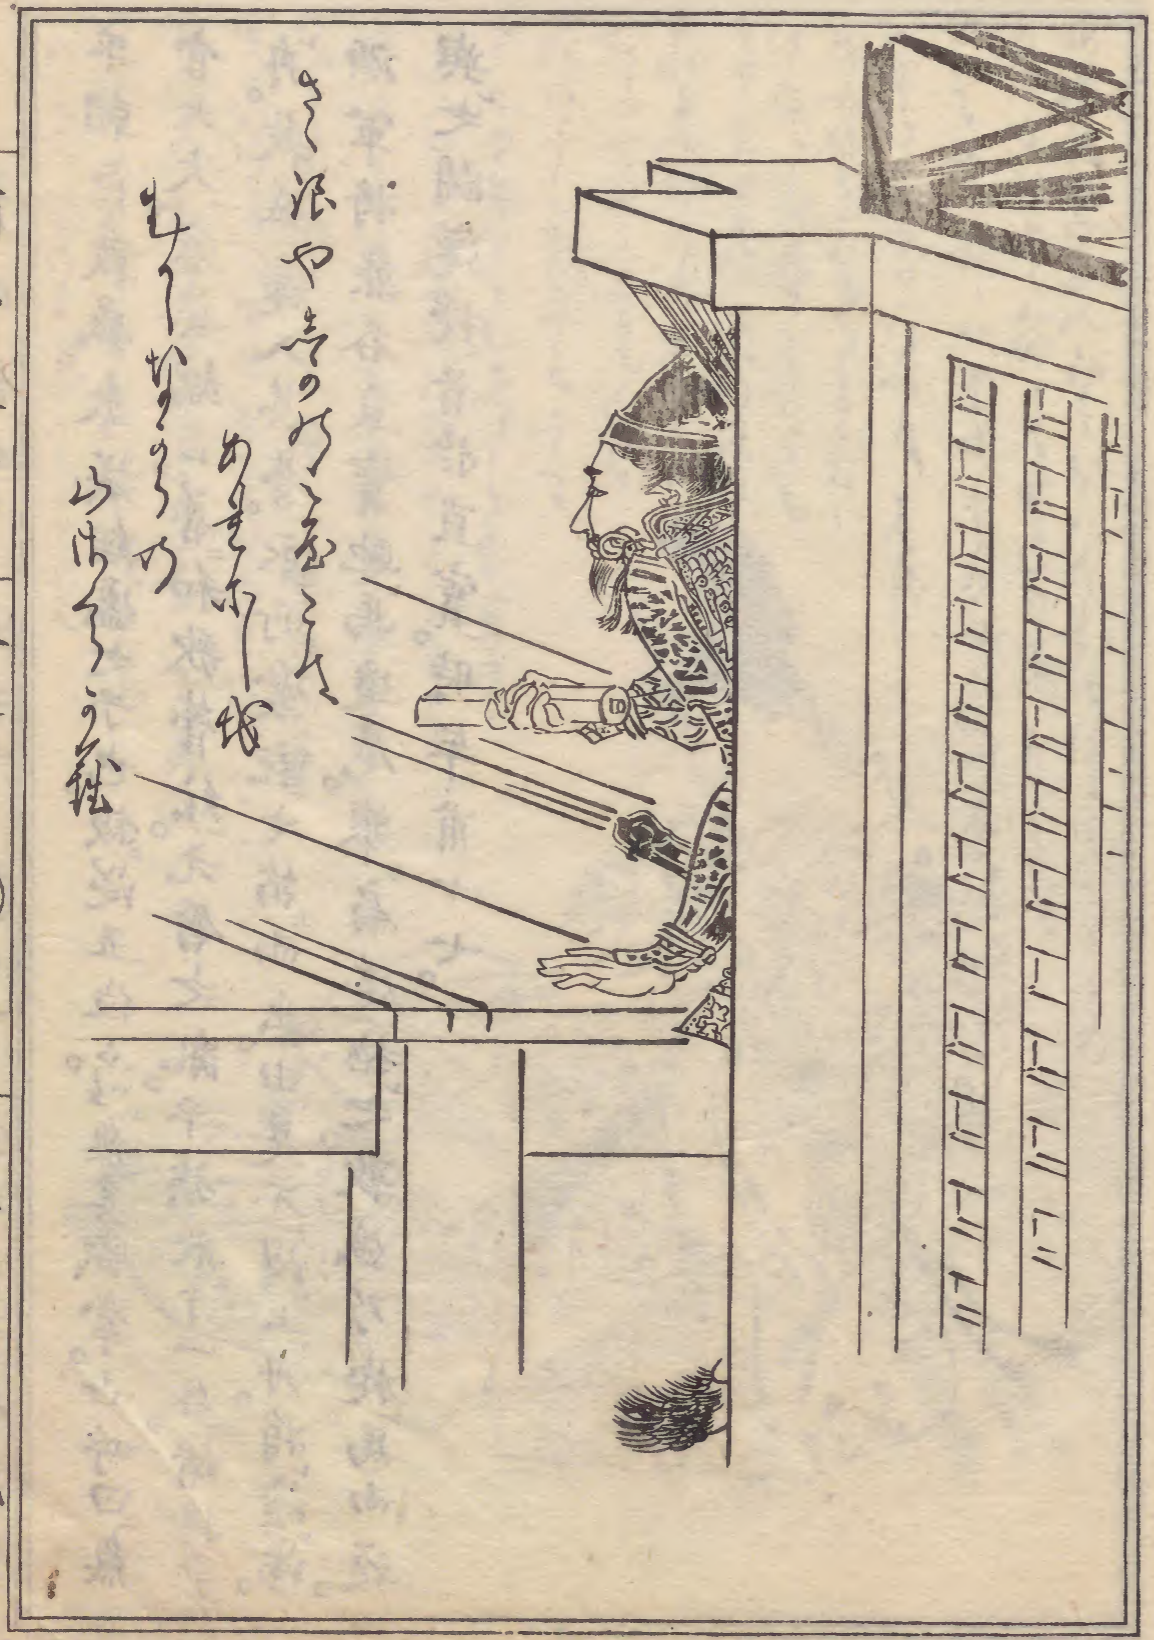 さゝ浪や志かのみやこは
あれにしを
むかしなからの
山さくらかな